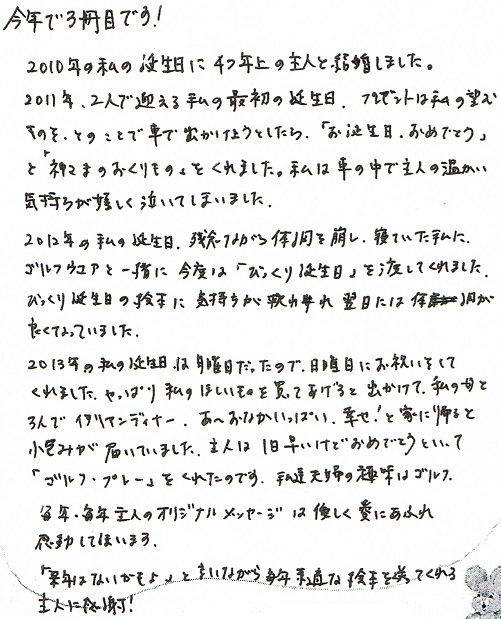 今年で3冊目です!
2010年の私の誕生日に4つ年上の主人と結婚しました。
2011年、2人で迎える私の最初の誕生日、プレゼントは私の望む
ものを、とのことで車で出かけようとしたら、「お誕生日、おめでとう」
と「神さまのおくりもの」をくれました。私は車の中で主人の温かい
気持ちが嬉しく泣いてしまいました。
2012年の私の誕生日、残念ながら体調を崩し、寝ていた私に、
ゴルフウェアと一緒に今度は「びっくり誕生日」を渡してくれました。
びっくり誕生日の絵本に気持ちが 翌日には体調が
良くなっていました。
2013年の私の誕生日は月曜日だったので、日曜日にお祝いをして
くれました。やっぱり私のほしいものを買ってあげると出かけて、私の母と
3人でイタリアンディナー、あ〜おなかいっぱい、幸せ!と家に帰ると
小包みが届いていました。主人は1日早いけどおめでとうといって
「ゴルフ・プレー」をくれたのです。私達夫婦の趣味はゴルフ。
毎年・毎年主人のオリジナルメッセージは優しく愛にあふれ
感動してしまいます。
「来年はないかもよ」と言いながら毎年素適な絵本を送ってくれる
主人に感謝!